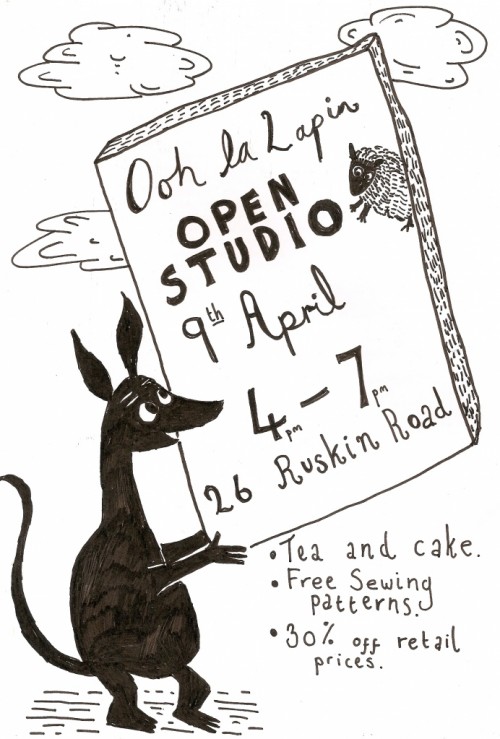 Ooh la Lapin
OPEN
STUDIO
9th April
4pm - 7pm
26 Ruskin Road
• Tea and cake.
• Free Sewing
patterns.
• 30% off retail
prices.